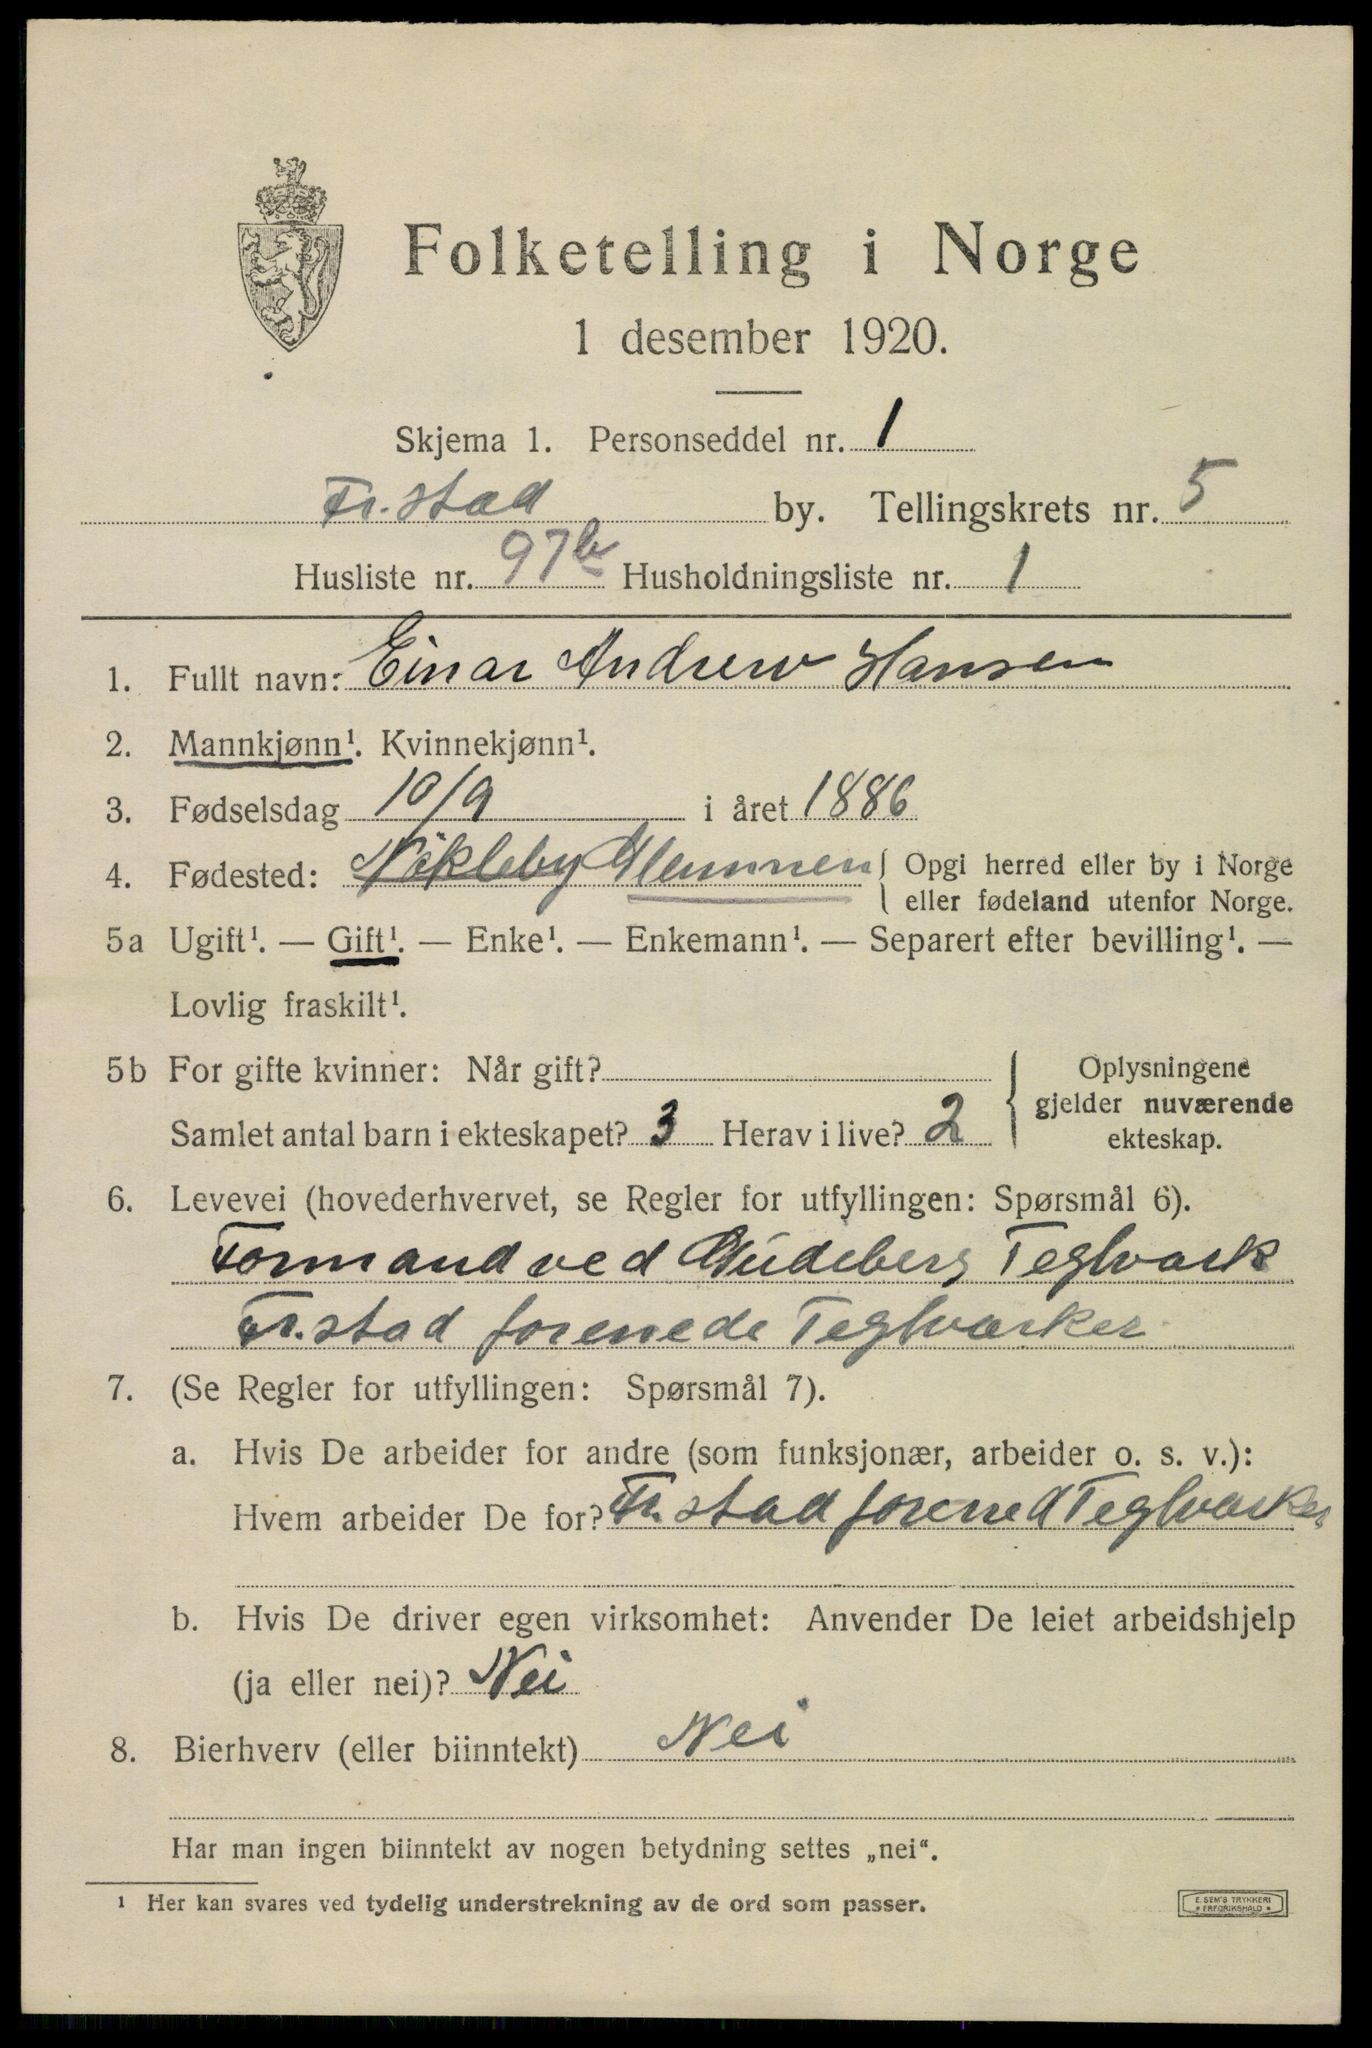 Folketelling i Norge
1 desember 1920.
Skjema 1. Personseddel nr. 1
Fr.stad by. Tellingskrets nr. 5
Husliste nr. 97b Husholdningsliste nr. 1
1. Fullt navn: Einar Andrew Hansen
2. Mannkjønn¹. Kvinnekjønn¹.
3. Fødselsdag 10/9 i året 1886
4. Fødested: Nökleby Glemmen { Opgi herred eller by i Norge
eller fødeland utenfor Norge.
5a Ugift¹. — Gift¹. — Enke¹. — Enkemann¹. — Separert efter bevilling¹. —
Lovlig fraskilt¹.
5b For gifte kvinner: Når gift? { Oplysningene
gjelder nuværende
ekteskap.
Samlet antal barn i ekteskapet? 3 Herav i live? 2
6. Levevei (hovederhvervet, se Regler for utfyllingen: Spørsmål 6).
Formand ved Gudeberg Teglværk
Fr.stad forenede Teglværker
7. (Se Regler for utfyllingen: Spørsmål 7).
a. Hvis De arbeider for andre (som funksjonær, arbeider o. s. v.):
Hvem arbeider De for? Fr.stad forened Teglværker
b. Hvis De driver egen virksomhet: Anvender De leiet arbeidshjelp
(ja eller nei)? Nei
8. Bierhverv (eller biinntekt) Nei
Har man ingen biinntekt av nogen betydning settes „nei“.
¹ Her kan svares ved tydelig understrekning av de ord som passer.
E. SEM'S TRYKKERI
FREDRIKSHALD